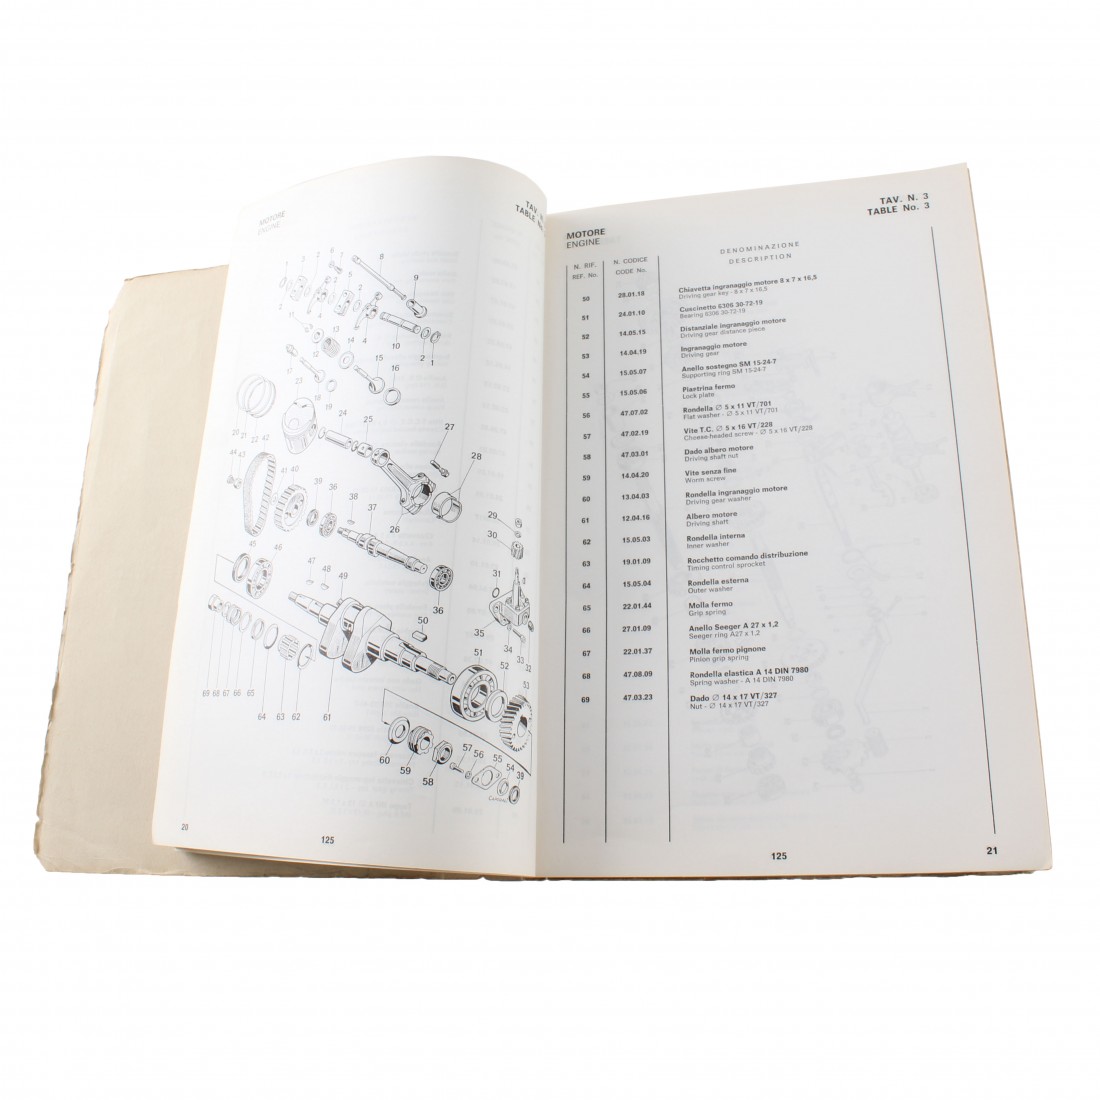 MOTORE
ENGINE
TAV. N.
TABLE No.
20
125
TAV. N. 3
TABLE No. 3
MOTORE
ENGINE
N. RIF. N. CODICE DENOMINAZIONE
REF. No. CODE No. DESCRIPTION
50 28.01.18 Chiavetta ingranaggio motore 8 x 7 x 16,5
Driving gear key - 8 x 7 x 16,5
51 24.01.10 Cuscinetto 6306 30-72-19
Bearing 6306 30-72-19
52 14.05.15 Distanziale ingranaggio motore
Driving gear distance piece
53 14.04.19 Ingranaggio motore
Driving gear
54 15.05.07 Anello sostegno SM 15-24-7
Supporting ring SM 15-24-7
55 15.05.06 Piastrina fermo
Lock plate
56 47.07.02 Rondella Ø 5 x 11 VT/701
Flat washer - Ø 5 x 11 VT/701
57 47.02.19 Vite T.C. Ø 5 x 16 VT/228
Cheese-headed screw - Ø 5 x 16 VT/228
58 47.03.01 Dado albero motore
Driving shaft nut
59 14.04.20 Vite senza fine
Worm screw
60 13.04.03 Rondella ingranaggio motore
Driving gear washer
61 12.04.16 Albero motore
Driving shaft
62 15.05.03 Rondella interna
Inner washer
63 19.01.09 Rocchetto comando distribuzione
Timing control sprocket
64 15.05.04 Rondella esterna
Outer washer
65 22.01.44 Molla fermo
Grip spring
66 27.01.09 Anello Seeger A 27 x 1,2
Seeger ring A27 x 1,2
67 22.01.37 Molla fermo pignone
Pinion grip spring
68 47.08.09 Rondella elastica A 14 DIN 7980
Spring washer - A 14 DIN 7980
69 47.03.23 Dado Ø 14 x 17 VT/327
Nut - Ø 14 x 17 VT/327
125
21